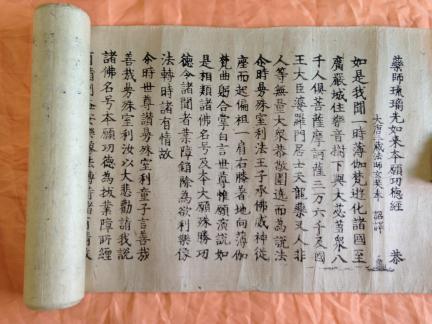 藥師琉璃光如來本願功德經
恭
大唐三藏法師玄奘奉 詔譯
如是我聞一時薄伽梵遊化諸國至
廣嚴城住樂音樹下與大苾蒭眾八
千人俱菩薩摩訶薩三万六千及國
王大臣婆羅門居士天龍藥叉人非
人等無量大眾恭敬圍遶而為說法
尒時曼殊室利法王子承佛威神從
座而起偏袒一肩右膝著地向薄伽
梵曲躬合掌白言世尊惟願演說如
是相類諸佛名号及本大願殊勝功
德令諸聞者業障銷除為欲利樂像
法轉時諸有情故
尒時世尊讚曼殊室利童子言善哉
善哉曼殊室利汝以大悲勸請我說
諸佛名号本願功德為拔業障所纏
有情利益安樂像法轉時諸有情故